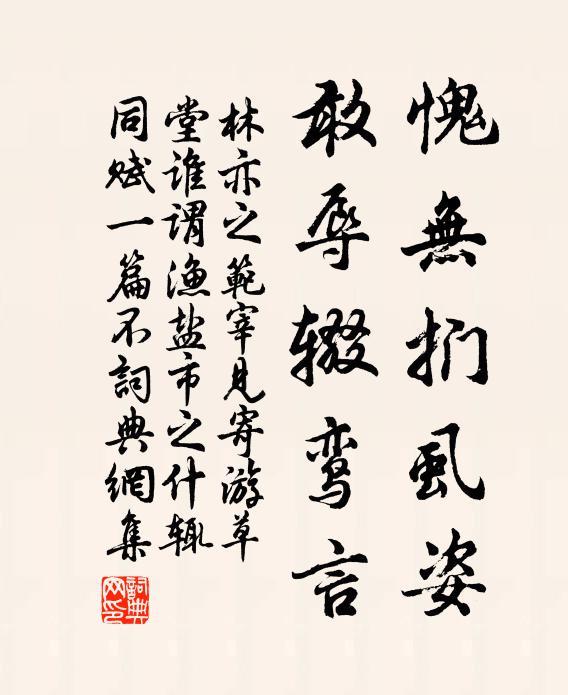 愧無捫虱姿
敢辱辍鸾言
林亦之範宰見寄游草
堂誰謂漁盐市之什輒
同赋一篇不詞典網集
詞典網印